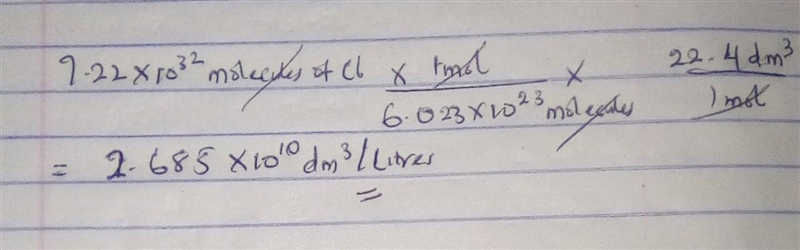 7.22 × 10³² molecules of Cl × 1mol / 6.023 × 10²³ molecules × 22.4 dm³ / 1 mol
= 2.685 × 10¹⁰ dm³ / Litres